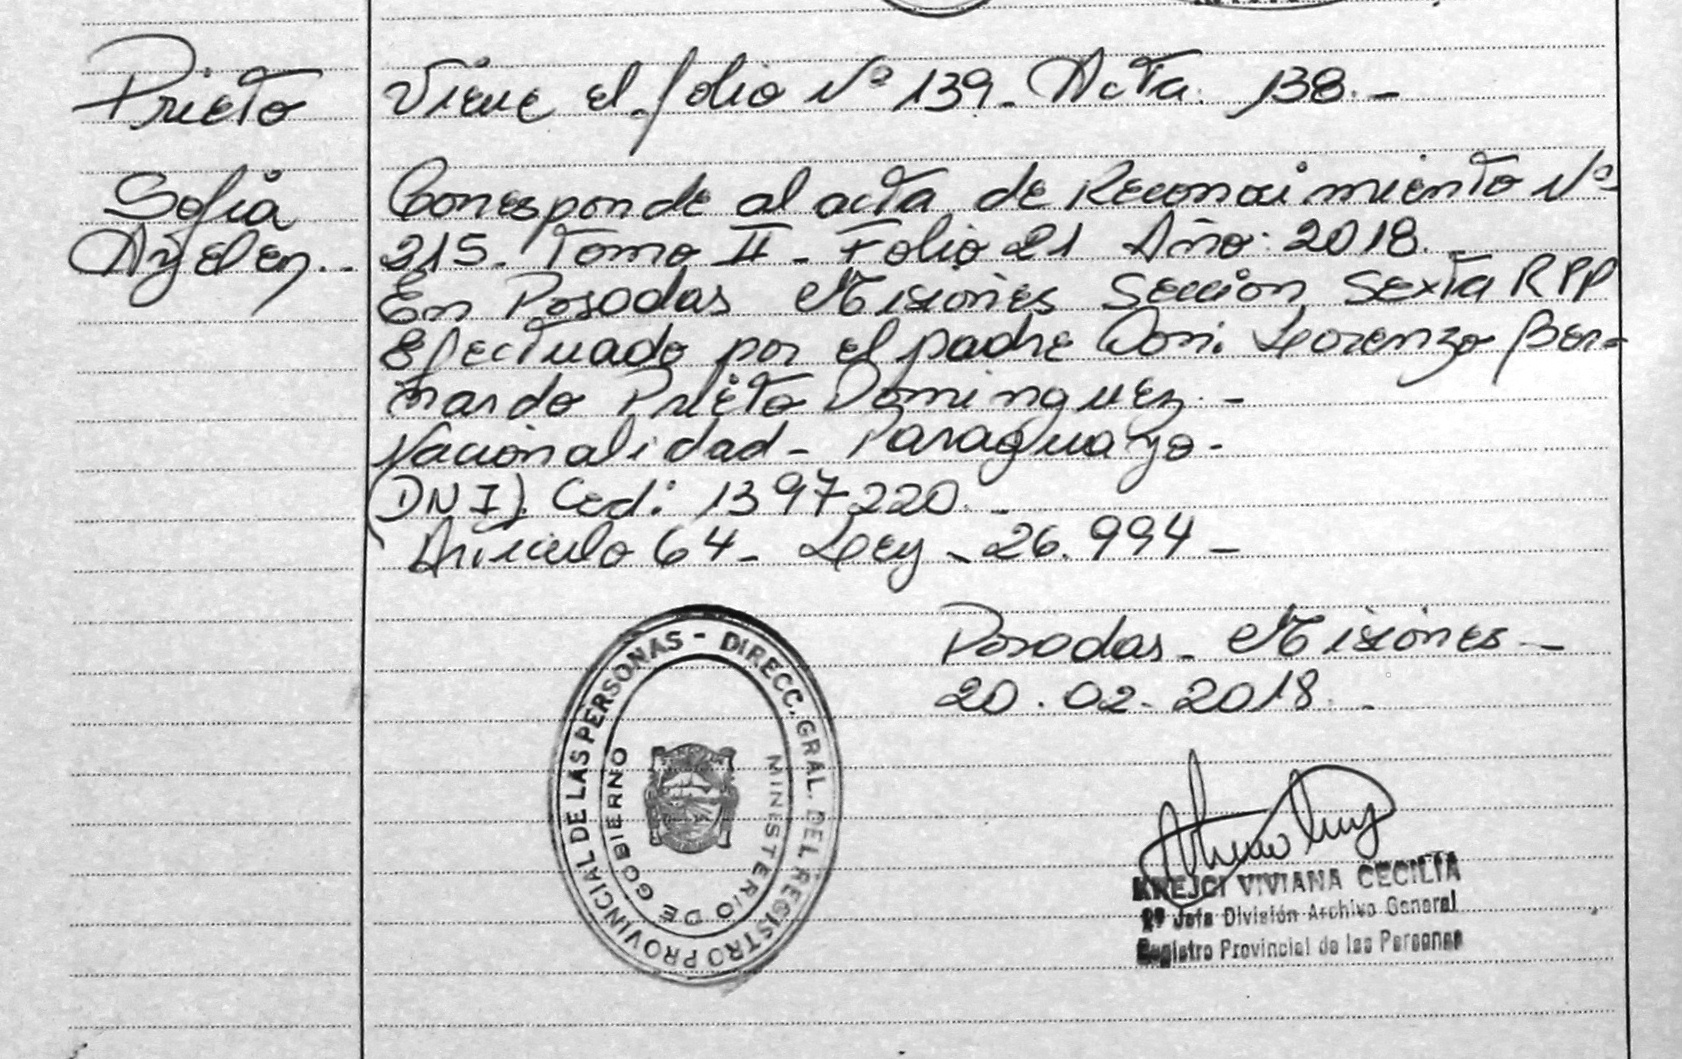 Prieto
Sofia
Ayelen..
Viene el folio Nº 139. Acta. 138.-
Corresponde al acta de Reconocimiento Nº
215. Tomo II - Folio 21 Año: 2018.-
En Posadas Misiones Seccion Sexta RPP
Efectuado por el padre Don: Lorenzo Ber=
nardo Prieto Dominguez.-
Nacionalidad - Paraguayo-
(DNI) Ced: 1397220.-
Articulo 64- Ley - 26.994-
Posadas - Misiones-
20.02.2018..
DIRECC. GRAL. DEL REGISTRO PROVINCIAL DE LAS PERSONAS -
MINISTERIO DE GOBIERNO
KREJCI VIVIANA CECILIA
2º Jefa División Archivo General
Registro Provincial de las Personas